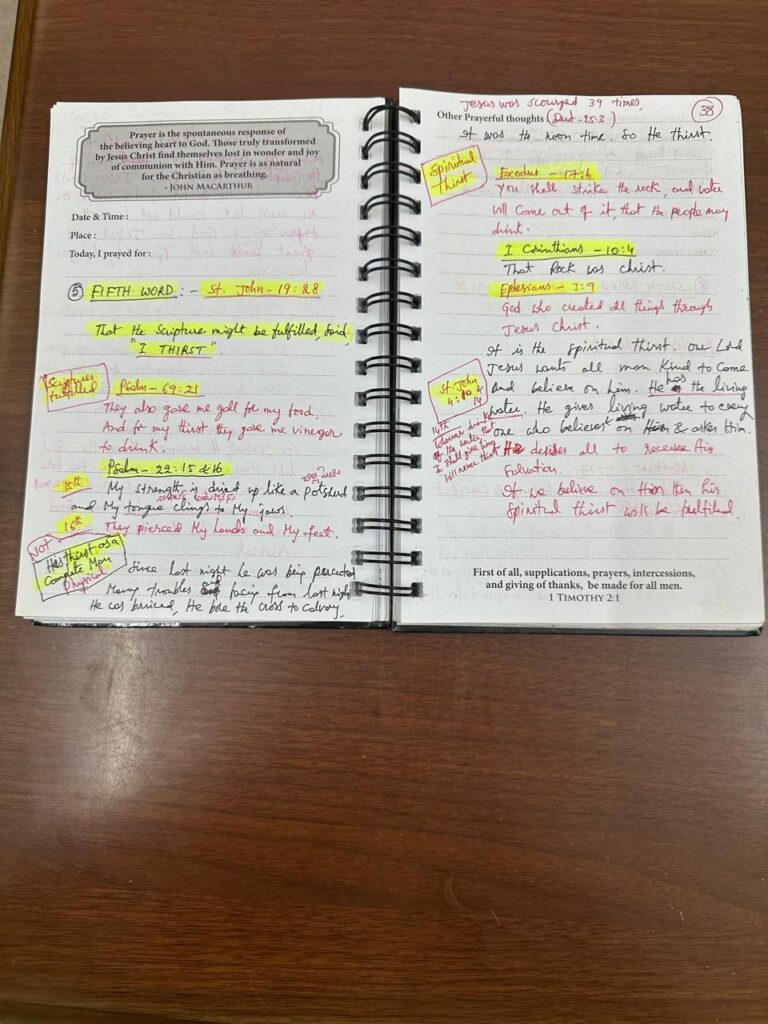 Prayer is the spontaneous response of
the believing heart to God. Those truly transformed
by Jesus Christ find themselves lost in wonder and joy
of communion with Him. Prayer is as natural
for the Christian as breathing.
- JOHN MACARTHUR
Date & Time :
Place :
Today, I prayed for :
⑤ FIFTH WORD : - St. John - 19 : 28
That the Scripture might be fulfilled, Said,
"I THIRST"
Scriptures fulfilled
Psalm - 69:21
They also gave me gall for my food.
And for my thirst they gave me vinegar
to drink.
Psalm - 22 : 15 & 16
15th My strength is dried up like a potsherd
and My tongue clings to My jaws.
16th They pierced My hands and My feet.
NOT
Has thirst as a
Complete Man
Physical
Since last night he was being
Many troubles and facing from last night
He was bruised, He bore the cross to calvary.
Jesus was scourged 39 times,
38
Other Prayerful thoughts (Deut - 25:3)
It was the noon time. So He thirst.
Spiritual
Thirst
Exodus - 17:6
You shall strike the rock, and water
will come out of it, that the people may
drink.
I Corinthians - 10:4
That Rock was christ.
Ephesians - 3:9
God who created all things through
Jesus Christ.
It is the spiritual thirst. our Lord
Jesus wants all man kind to come
and believe on him. He has the living
water. He gives living water to every
one who believes on Him & asks Him.
St. John
4:10 &
14
14th
Whoever drinks
of the water that
I shall give him
will never thirst
He desires all to receive His
Salvation.
If we believe on Him then his
Spiritual thirst will be fulfilled.
First of all, supplications, prayers, intercessions,
and giving of thanks, be made for all men.
1 TIMOTHY 2:1